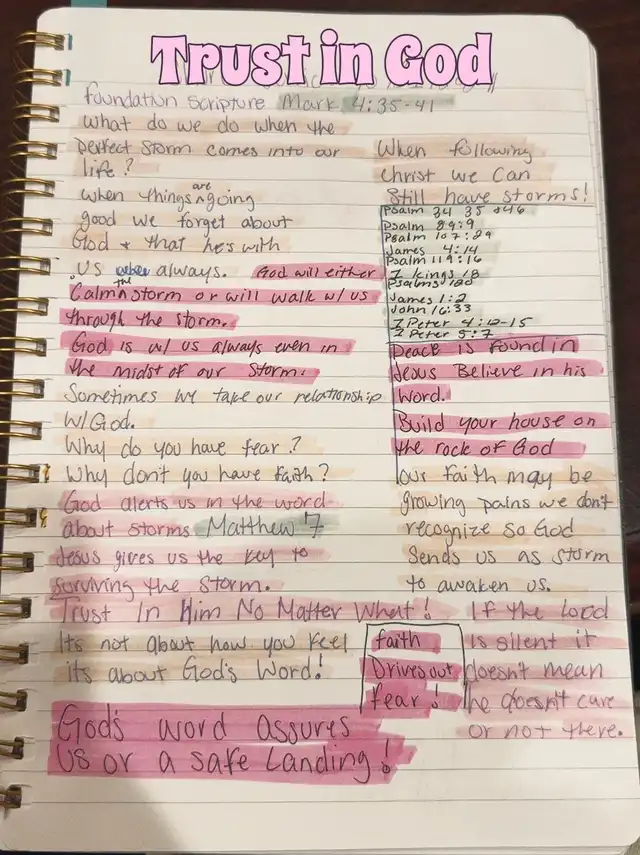 Trust in God
foundation scripture Mark 4:35-41
what do we do when the
perfect storm comes into our
life?
when things are going
good we forget about
God + that he's with
us always. God will either
Calm the storm or will walk w/ us
through the storm.
God is w/ us always even in
the midst of our storm.
Sometimes we take our relationship
w/God.
Why do you have fear?
Why don't you have faith?
God alerts us in the word
about storms Matthew 7
Jesus gives us the key to
surviving the storm.
Trust In Him No Matter What!
Its not about how you feel
its about God's Word!
God's word assures
us or a safe Landing!
When following
christ we can
still have storms!
Psalm 34 35 &46
Psalm 89:9
Psalm 107:29
James 4:14
Psalm 119:16
I kings 18
Psalms 120
James 1:2
John 16:33
I Peter 4:12-15
I Peter 5:7
Peace is found in
Jesus Believe in his
word.
Build your house on
the rock of God
our faith may be
growing pains we don't
recognize so God
sends us as storm
to awaken us.
faith
Drives out
fear!
If the Lord
is silent it
doesn't mean
he doesn't care
or not there.